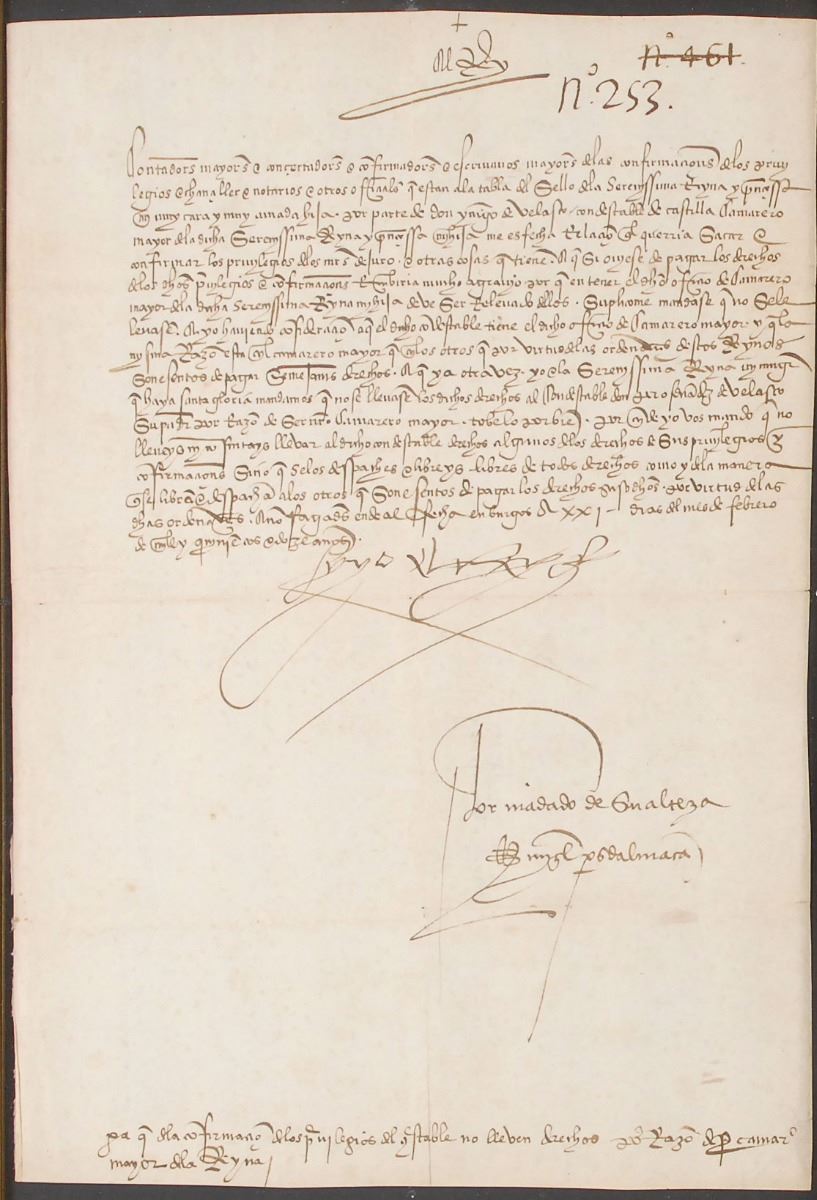 +
El Rey
N.º 461.
N.º 253.
Contadores mayores e concertadores e cōfirmadores e escrivanos mayores delas confirmaciones delos previ
legios e chanceller e notarios e otros officiales que estan ala tabla del Sello dela Serenissima Reyna y princessa
mi muy cara y muy amada hija. por parte de don ynigo de Velasco condestable de castilla Camarero
mayor dela dicha Serenissima Reyna y princessa mi hija me es fecha Relacion que querria Sacar e
confirmar los previlegios delos mrs de juro. e otras cosas que tiene. A que Si oviese de pagar los derechos
delos dhos previlegios e cōfirmaciones Recibiria mucho agravio por que en tener el dho officio de Camarero
mayor dela dicha Serenissima Reyna mi hija deve Ser Relevado dellos. Suplicome mandase que no Sele
levasē. E yo haviendo cōsideracion a que el dicho condestable tiene el dicho officio de Camarero mayor. y que lo
misma Razon esta enel camarero mayor que enlos otros que por virtud delas ordenanças destos Reynos
Son esentos de pagar Semejantes derechos. A que ya otra vez yo e la Serenissima Reyna mi muger
que haya santa gloria mandamos que no se llevasē los dichos derechos al Condestable don pero fernādez de Velasco
Su padre por Razon de Ser nro Camarero mayor. tobelo por biē. por ende yo vos mando que no
lleveys ni cōsintays llevar al dicho condestable derechos algunos delos derechos de Sus previlegios e
cōfirmaciones Sino que selos despacheys e libreys libres de todos derechos como y dela manera
que se librā e despachā alos otros que Son esentos de pagar los derechos susodhos. por virtud delas
dhas ordenanças. E no fagades ende al. Fecha en burgos A XXI dias del mes de febrero
de mil y quiniētos e doze años.
yo el Rey
Por mādado de Su alteza
miguel perez dalmaçā
pa que dela cōfirmacion delos previlegios del condestable no lleven derechos por Razō de Ser camarº
mayor dela Reyna